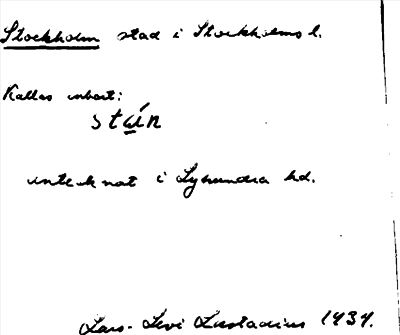 Stockholm stad i Stockholms l.
Kallas enbart:
stain
antecknat i Lyhundra hd.
Lars-Levi Læstadius 1934.